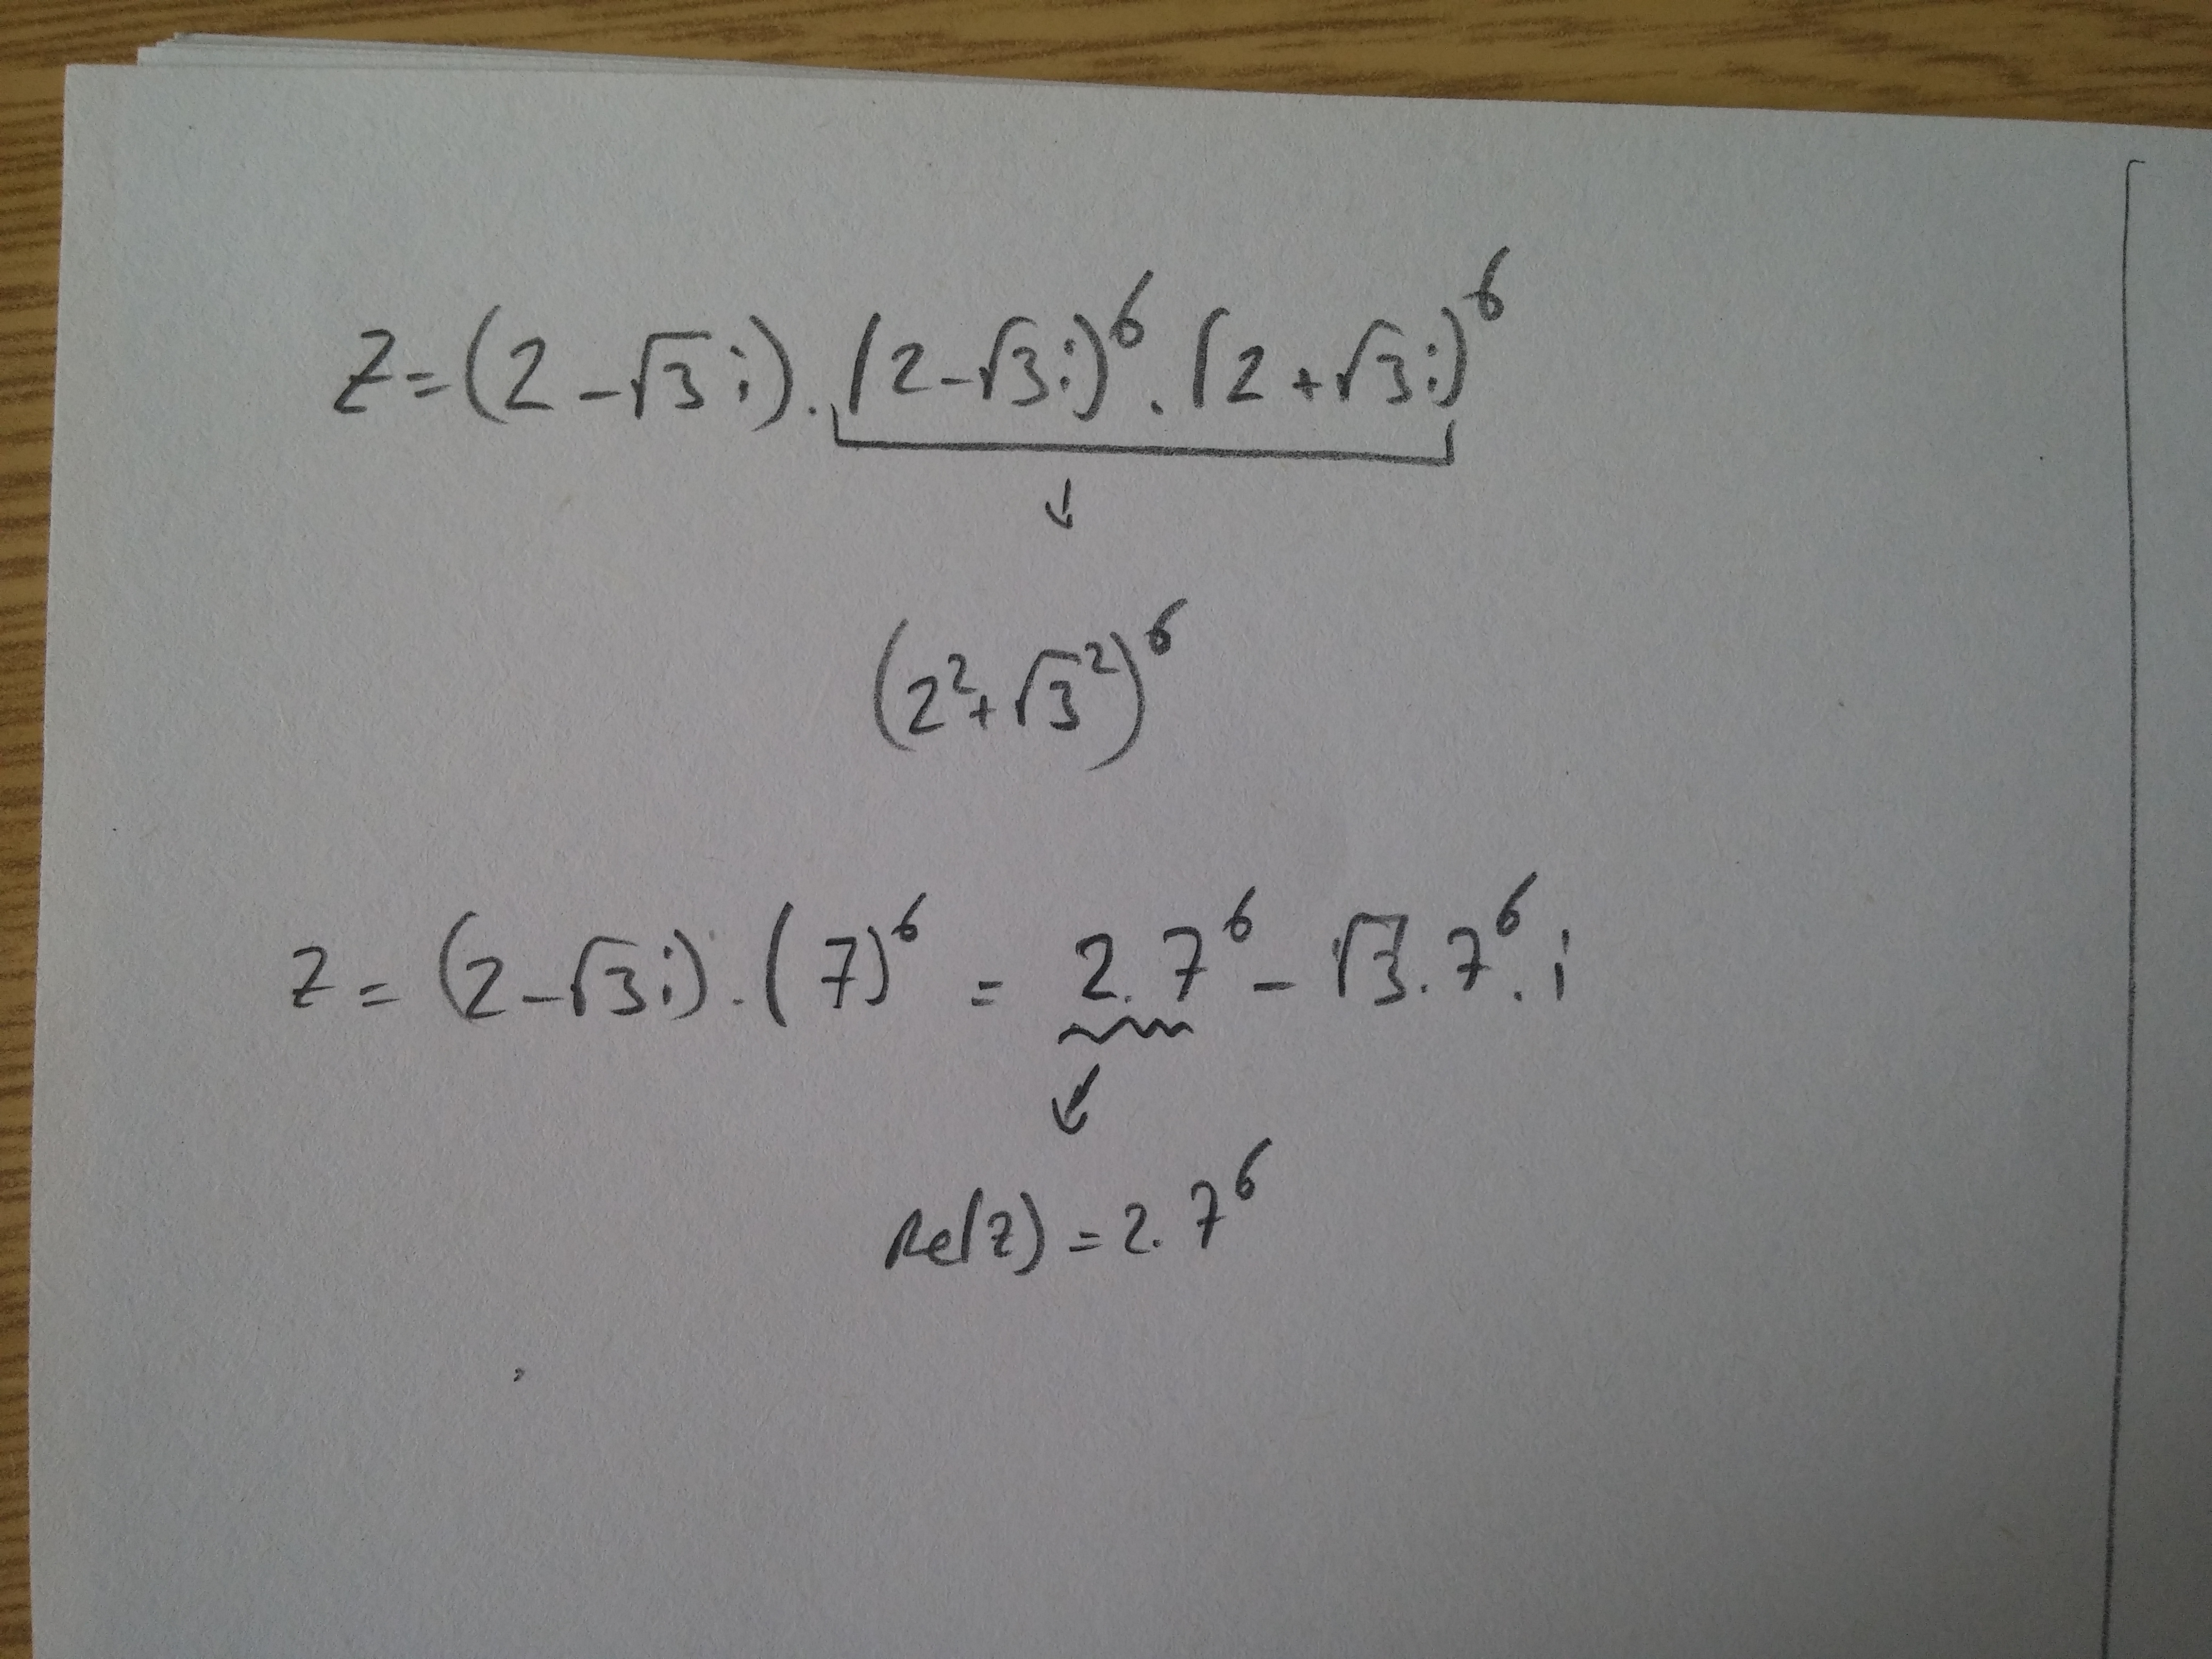 Z=(2-√3i).(2-√3i)⁶.(2+√3i)⁶
↓
(2²+√3²)⁶
Z=(2-√3i).(7)⁶=2.7⁶-√3.7⁶.i
↓
Re(Z)=2.7⁶